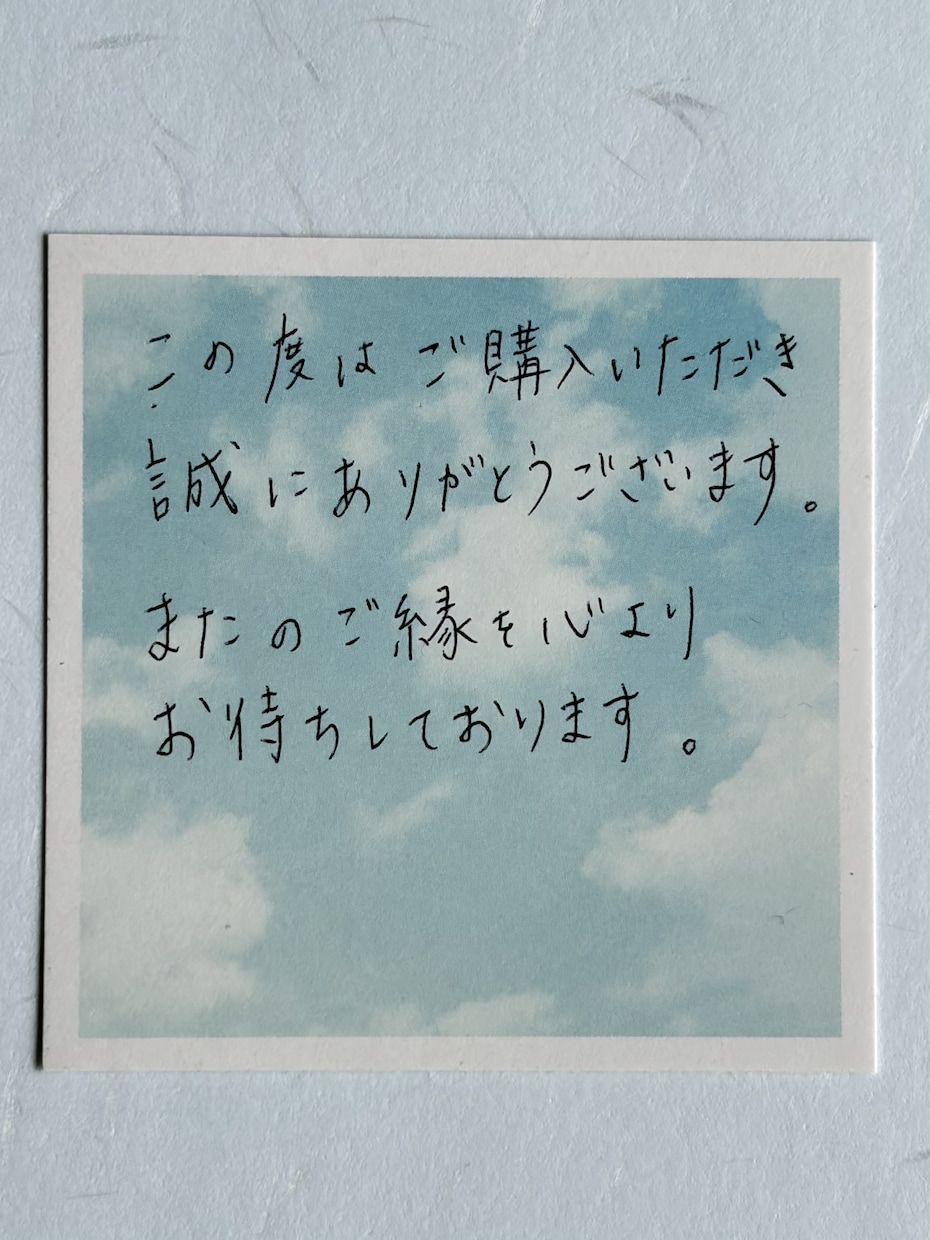 この度はご購入いただき
誠にありがとうございます。
またのご縁を心より
お待ちしております。